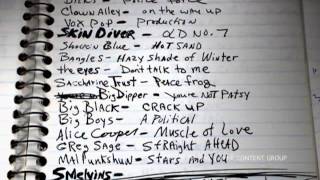 Clown Alley - on the way up
Vox Pop - Production
SKIN DIVER - OLD NO. 7
Shockin Blue - HOT SAND
Bangles - Hazy shade of Winter
the eyes - Don't talk to me
Saccharine Trust - Peace frog
Big Dipper - You're NOT PATSY
Big Black - CRACK UP
Big Boys - A Political
Alice Cooper - Muscle of Love
GREG SAGE - STRAIGHT AHEAD
Malfunkshun - Stars and YOU
SMELVINS -
CONTENT GROUP